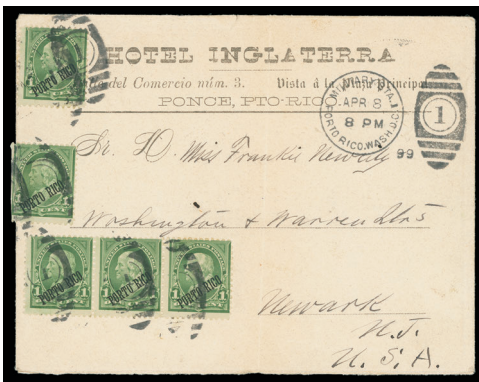 HOTEL INGLATERRA
del Comercio núm. 3. Vista á la Plaza Principal
PONCE, PTO-RICO
MILITARY STA. 1
APR 8
8 PM
PORTO RICO, WASH. D.C.
99
1
Miss Frankie
Washington & Warren Sts
Newark
N.J.
U.S.A.
PORTO RICO
PORTO RICO
PORTO RICO
PORTO RICO
PORTO RICO
1 1
1 1
1 1